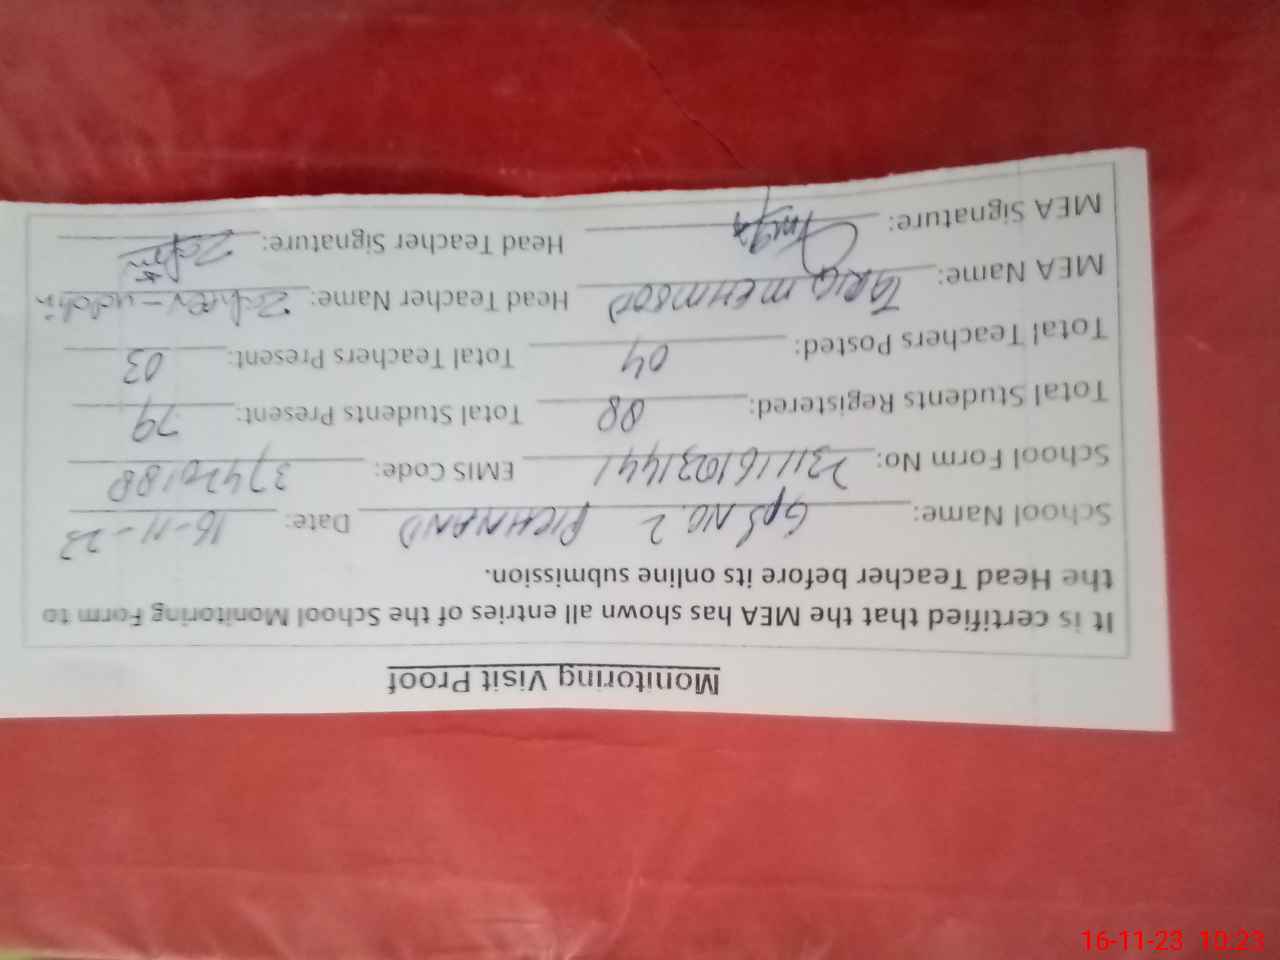 Monitoring Visit Proof
It is certified that the MEA has shown all entries of the School Monitoring Form to
the Head Teacher before its online submission.
School Name: GPS NO. 2 PICHNAND Date: 16-11-23
School Form No: 2311161031441 EMIS Code: 37420188
Total Students Registered: 88 Total Students Present: 79
Total Teachers Posted: 04 Total Teachers Present: 03
MEA Name: TARIQ MEHMOOD Head Teacher Name:
MEA Signature: Head Teacher Signature:
16-11-23 10:23